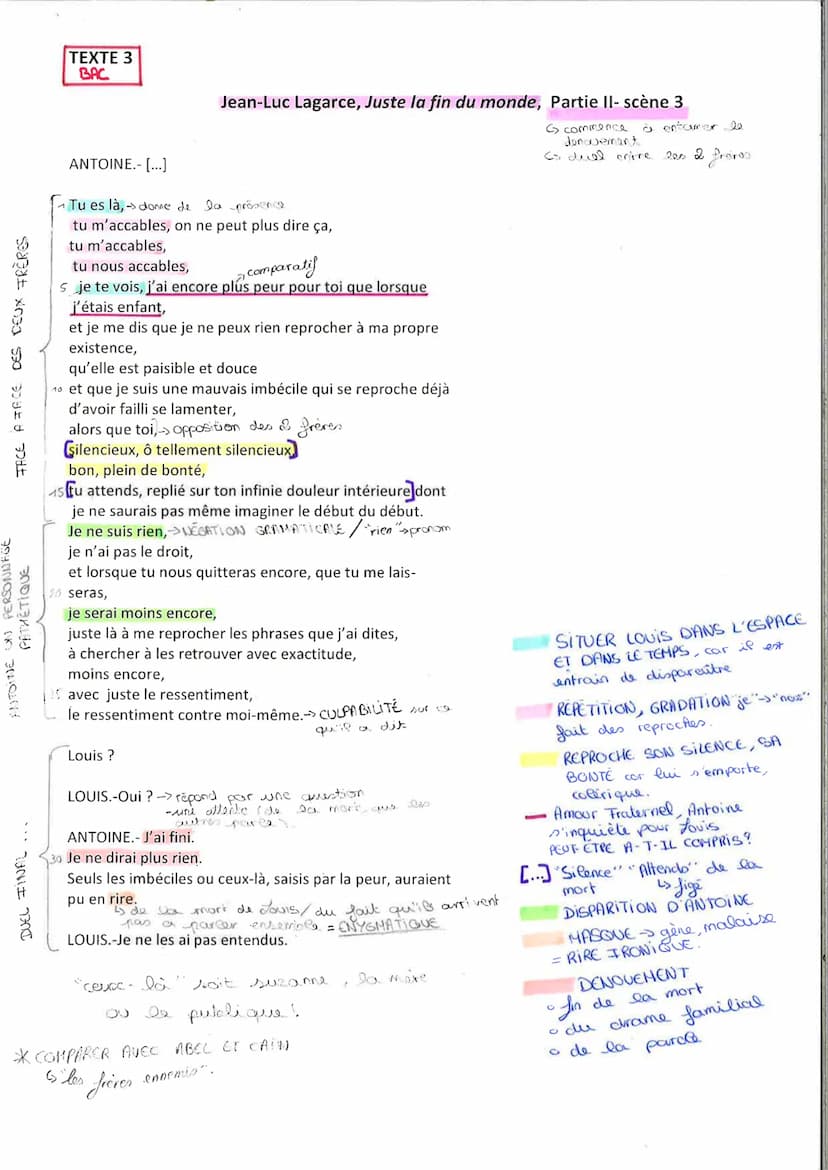 TEXTE 3
BAC
Jean-Luc Lagarce, Juste la fin du monde, Partie II- scène 3
↳ commence à entamer le
dénouement
↳ duel entre les 2 frères
ANTOINE.- […]
FACE A FACE DES DEUX FRÈRES
1 Tu es là, → donne de la présence
tu m’accables, on ne peut plus dire ça,
tu m’accables,
tu nous accables,
comparatif
5 je te vois, j’ai encore plus peur pour toi que lorsque
j’étais enfant,
et je me dis que je ne peux rien reprocher à ma propre
existence,
qu’elle est paisible et douce
10 et que je suis une mauvais imbécile qui se reproche déjà
d’avoir failli se lamenter,
alors que toi, → opposition des 2 frères
[silencieux, ô tellement silencieux,]
bon, plein de bonté,
15 [tu attends, replié sur ton infinie douleur intérieure] dont
je ne saurais pas même imaginer le début du début.
ANTOINE UN PERSONNAGE
PATHÉTIQUE
Je ne suis rien, → NÉGATION GRAMATICALE / "rien" → pronom
je n’ai pas le droit,
et lorsque tu nous quitteras encore, que tu me lais-
20 seras,
je serai moins encore,
juste là à me reprocher les phrases que j’ai dites,
à chercher à les retrouver avec exactitude,
moins encore,
25 avec juste le ressentiment,
le ressentiment contre moi-même. → CULPABILITÉ sur ce
qu'il a dit
DUEL FINAL ...
Louis ?
LOUIS.-Oui ? → répond par une question
- une attente (de la mort, que les
autres parlent)
ANTOINE.- J’ai fini.
30 Je ne dirai plus rien.
Seuls les imbéciles ou ceux-là, saisis par la peur, auraient
pu en rire.
↳ de la mort de Louis / du fait qu'ils arrivent
pas à parler ensemble = ENYGMATIQUE
LOUIS.-Je ne les ai pas entendus.
"ceux-là" soit suzanne, la mère
ou le publique !
* COMPARER AVEC ABEL ET CAIN
↳ "les frères ennemis".
SITUER LOUIS DANS L'ESPACE
ET DANS LE TEMPS, car il est
entrain de disparaître
RÉPÉTITION, GRADATION "je" → "nous"
fait des reproches.
REPROCHE SON SILENCE, SA
BONTÉ car lui s'emporte,
colérique.
Amour Fraternel, Antoine
s'inquiète pour Louis
PEUT ÊTRE A-T-IL COMPRIS ?
[...] "Silence" "Attends" de la
mort ↳ figé
DISPARITION D'ANTOINE
MASQUE → gêne, malaise
= RIRE IRONIQUE.
DENOUEMENT
° fin de la mort
° du drame familial
° de la parole